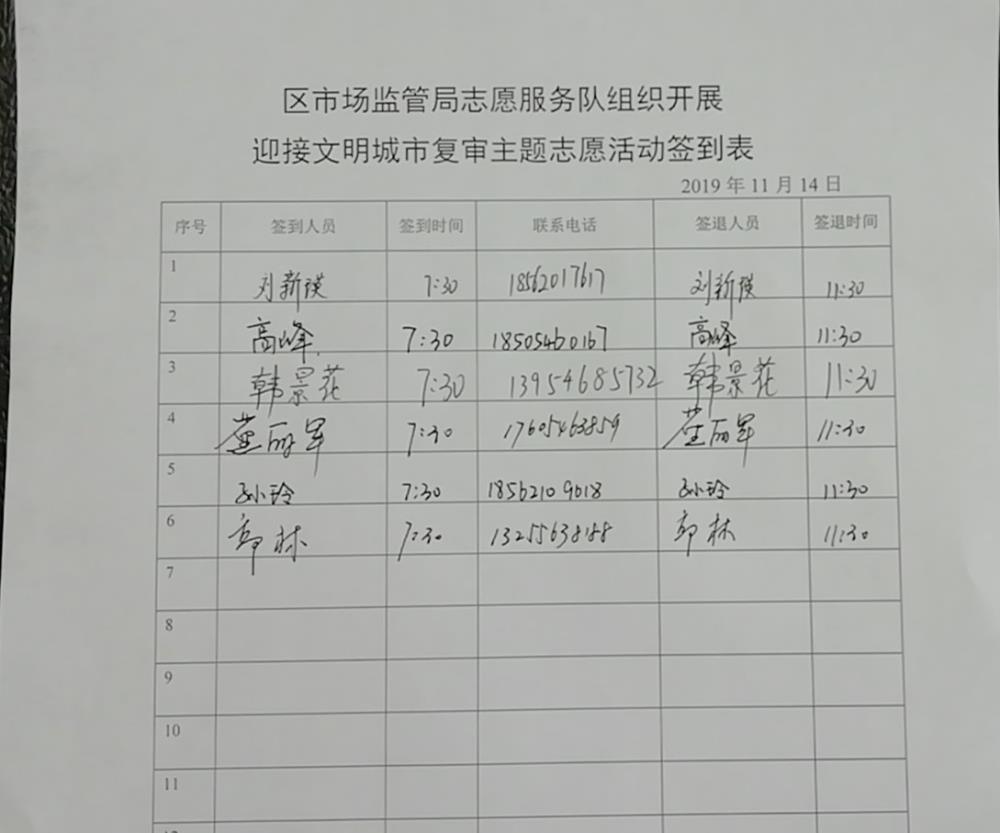 区市场监管局志愿服务队组织开展
迎接文明城市复审主题志愿活动签到表
2019 年 11 月 14 日
序号 签到人员 签到时间 联系电话 签退人员 签退时间
1 刘新瑛 7:30 18562017617 刘新瑛 11:30
2 高峰 7:30 18505460167 高峰 11:30
3 韩景花 7:30 13954685732 韩景花 11:30
4 丽军 7:30 17605463859 丽军 11:30
5 孙小玲 7:30 18562109018 孙小玲 11:30
6 郭林 7:30 13255638188 郭林 11:30
7
8
9
10
11